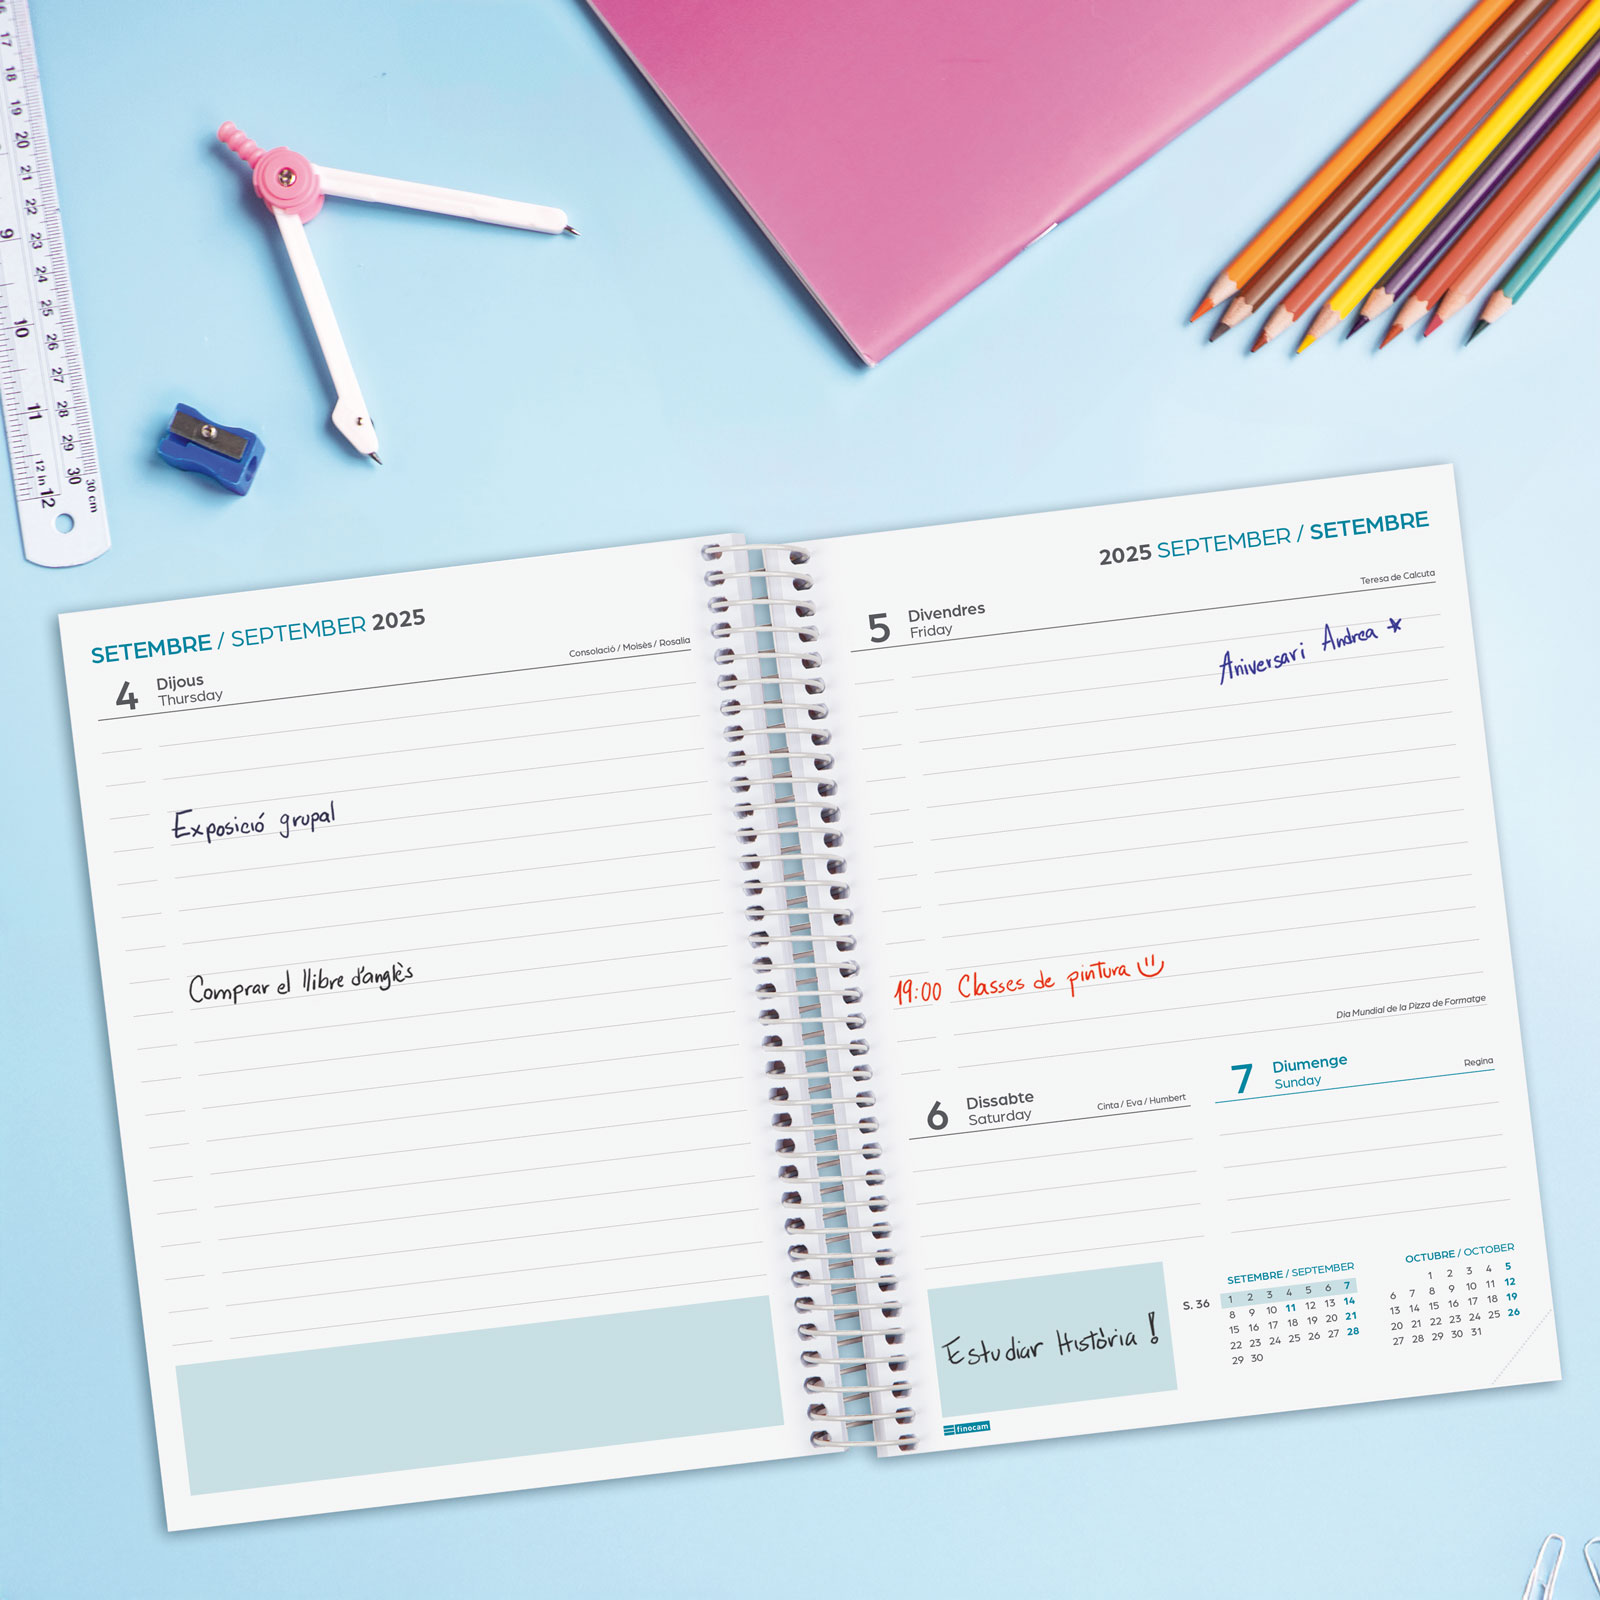 17
18
19
20
21
22
9
23
24
25
10
26
27
11
28
29
12 in
30
12
30 cm
SETEMBRE / SEPTEMBER 2025
Consolació / Moisès / Rosalia
4 Dijous
Thursday
Exposició grupal
Comprar el llibre d'anglès
2025 SEPTEMBER / SETEMBRE
Teresa de Calcuta
5 Divendres
Friday
Aniversari Andrea
19:00 Classes de pintura
Dia Mundial de la Pizza de Formatge
6 Dissabte
Saturday
Cinta / Eva / Humbert
7 Diumenge
Sunday
Regina
Estudiar Història !
finocam
SETEMBRE / SEPTEMBER
S. 36 1 2 3 4 5 6 7
8 9 10 11 12 13 14
15 16 17 18 19 20 21
22 23 24 25 26 27 28
29 30
OCTUBRE / OCTOBER
1 2 3 4 5
6 7 8 9 10 11 12
13 14 15 16 17 18 19
20 21 22 23 24 25 26
27 28 29 30 31